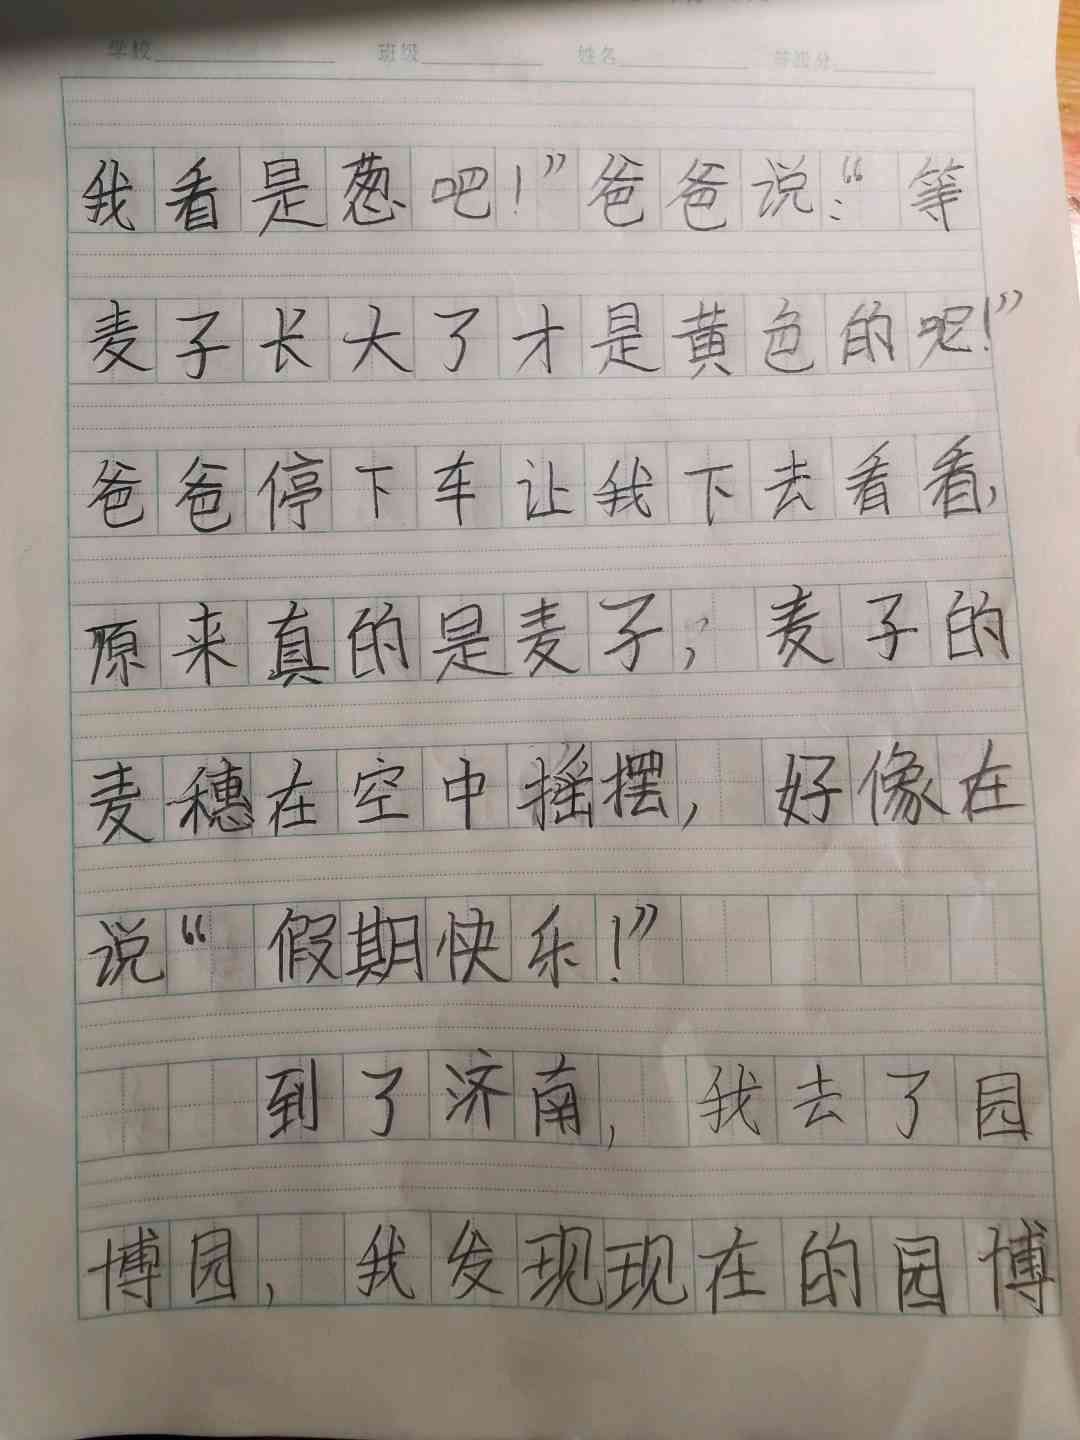 学校 班级 姓名 等级分
我看是葱吧！”爸爸说：“等
麦子长大了才是黄色的呢！”
爸爸停下车让我下去看看，
原来真的是麦子，麦子的
麦穗在空中摇摆，好像在
说“假期快乐！”
到了济南，我去了园
博园，我发现现在的园博